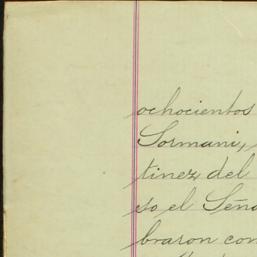 ochocientos
Sormani,
tinez del
so el Seño
braron con